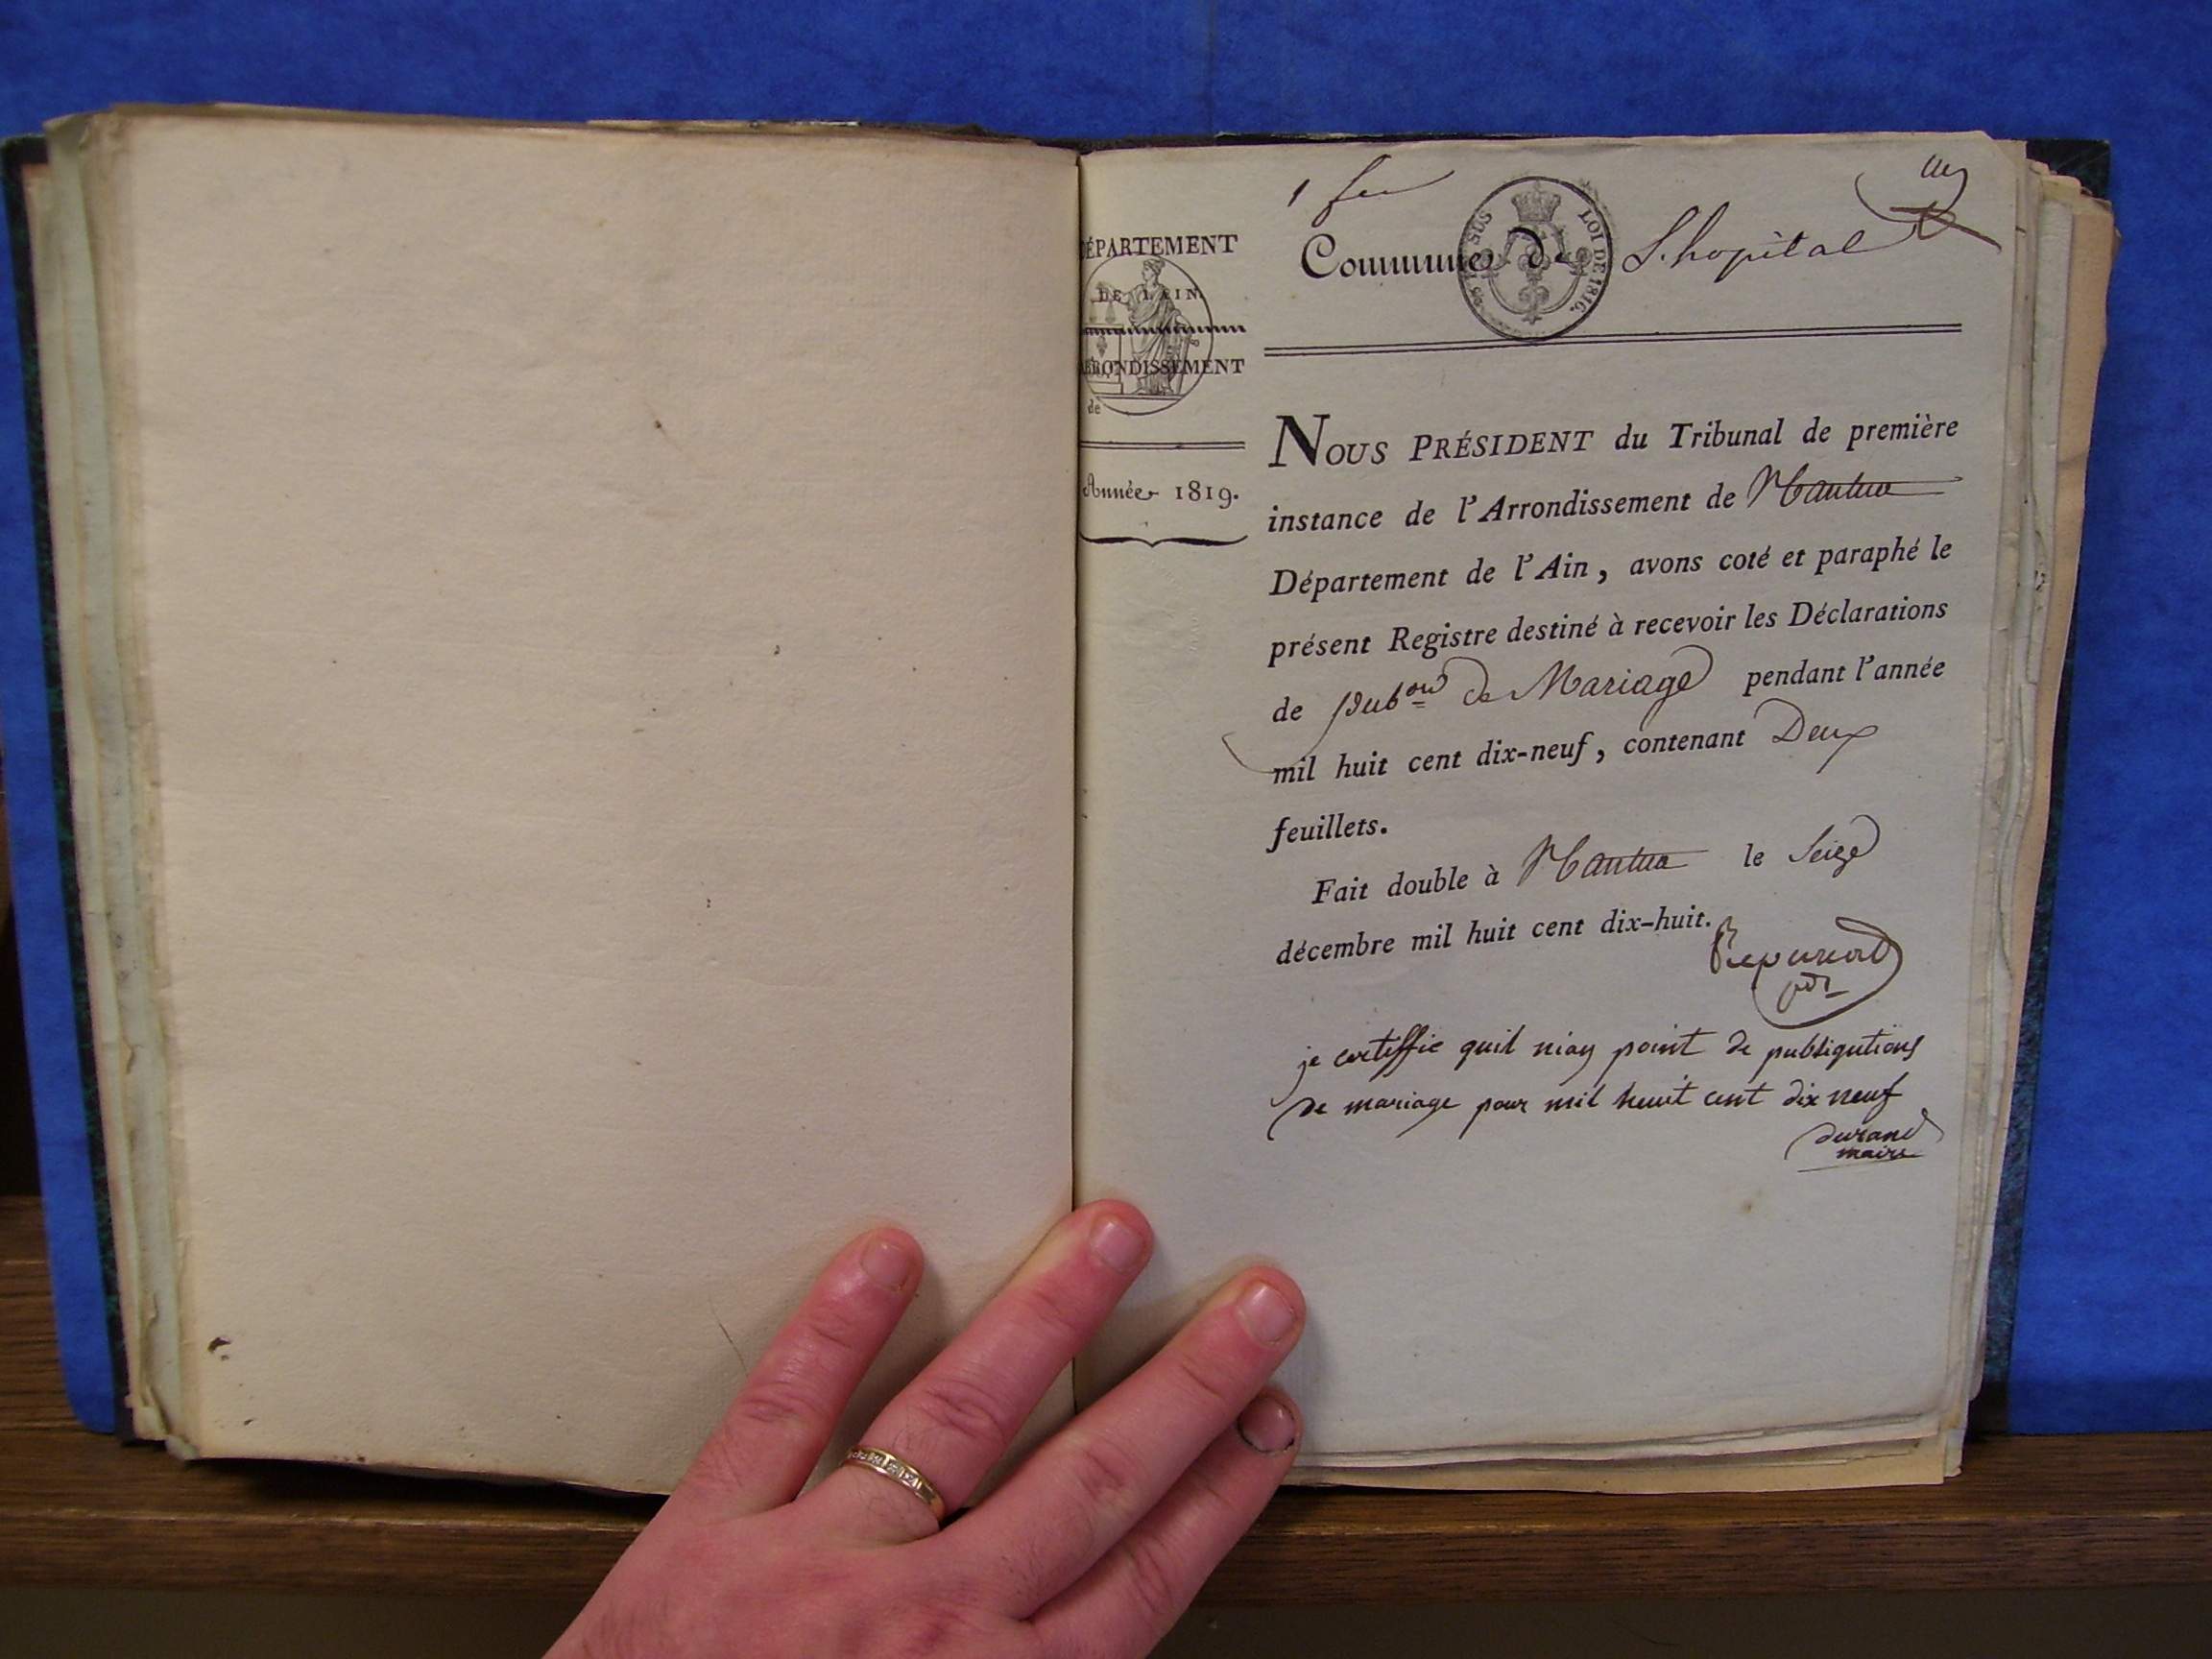 1 fer
DÉPARTEMENT
DE L'AIN
ARRONDISSEMENT
de
Année 1819.
Commune de L'hopital
SUS
LOI DE 1816.
NOUS PRÉSIDENT du Tribunal de première
instance de l'Arrondissement de Nantua
Département de l'Ain, avons coté et paraphé le
présent Registre destiné à recevoir les Déclarations
de pubons de Mariage pendant l'année
mil huit cent dix-neuf, contenant Deux
feuillets.
Fait double à Nantua le Seize
décembre mil huit cent dix-huit.
je certiffie quil niay point de publiqutions
de mariage pour mil heuit cent dix neuf
durand
maire